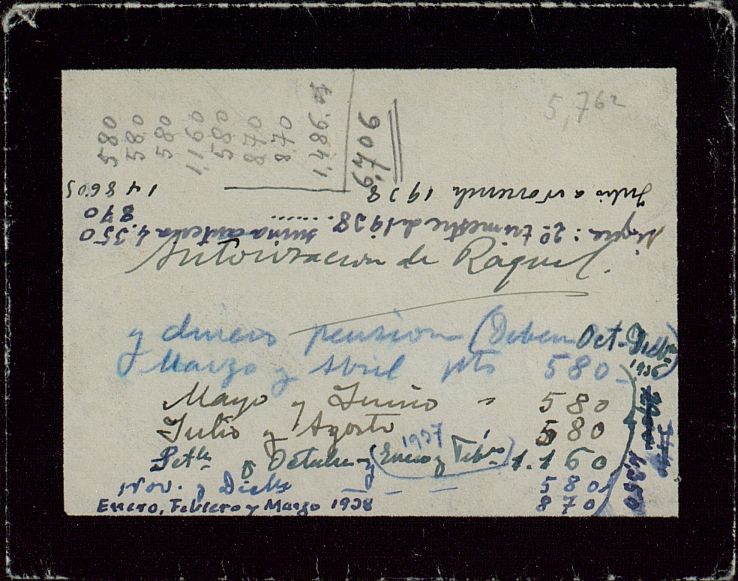 5,762
580
580
580
1,160
580
870
870
1,486.05
6,706
Julio a Novienb 1938 148605
2º trimestre de 1938. suma anterior 4.350
870
Autorizacion de Raquel.
y dinero pension (Deben Oct-Dicbre
1936)
Marzo y Abril pts 580
Mayo y Junio " 580
Julio y Agosto 580
Setbe y Octubre y (Enero y Febro 1937) 1.160
Nov. y Dicbe 580
Enero, Febrero y Marzo 1938 870
4,350